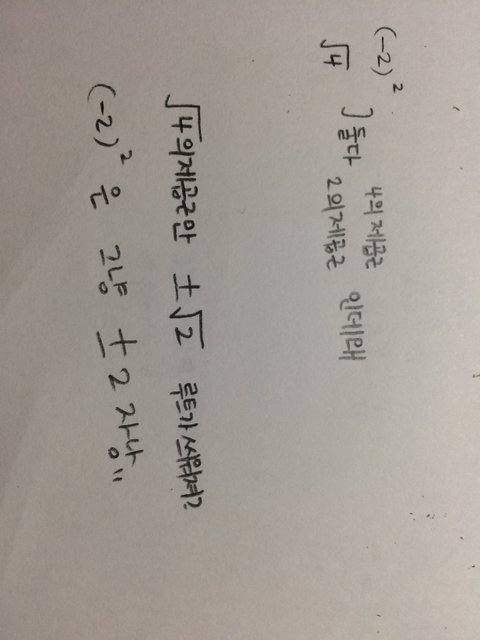 (-2)² 4의 제곱근
√4 } 둘다 2의 제곱근 인데 왜
√4의 제곱근만 ±√2 루트가 씌워져?
(-2)² 은 그냥 ±2 자낭"